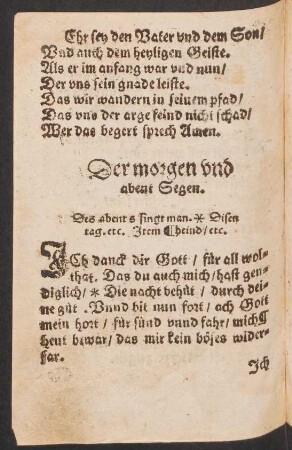 Ehr sey den Vater vnd dem Son/
Vnd auch dem heyligen Geiste.
Als er im anfang war vnd nun/
Der vns sein gnade leiste.
Das wir wandern in seinem pfad/
Das vns der arge feind nicht schad/
Wer das begert sprech Amen.
Der morgen vnd
abent Segen.
Des abent s singt man.* Disen
tag.etc. Item Cheind/etc.
ICh danck dir Gott/ für all wol-
that. Das du auch mich/hast gen-
diglich/ * Die nacht behüt/ durch dei-
ne güt. Vnnd bit nun fort/ ach Gott
mein hort/ für sünd vnnd fahr/ mich
heut bewar/ das mir kein böses wider-
far.
Ich